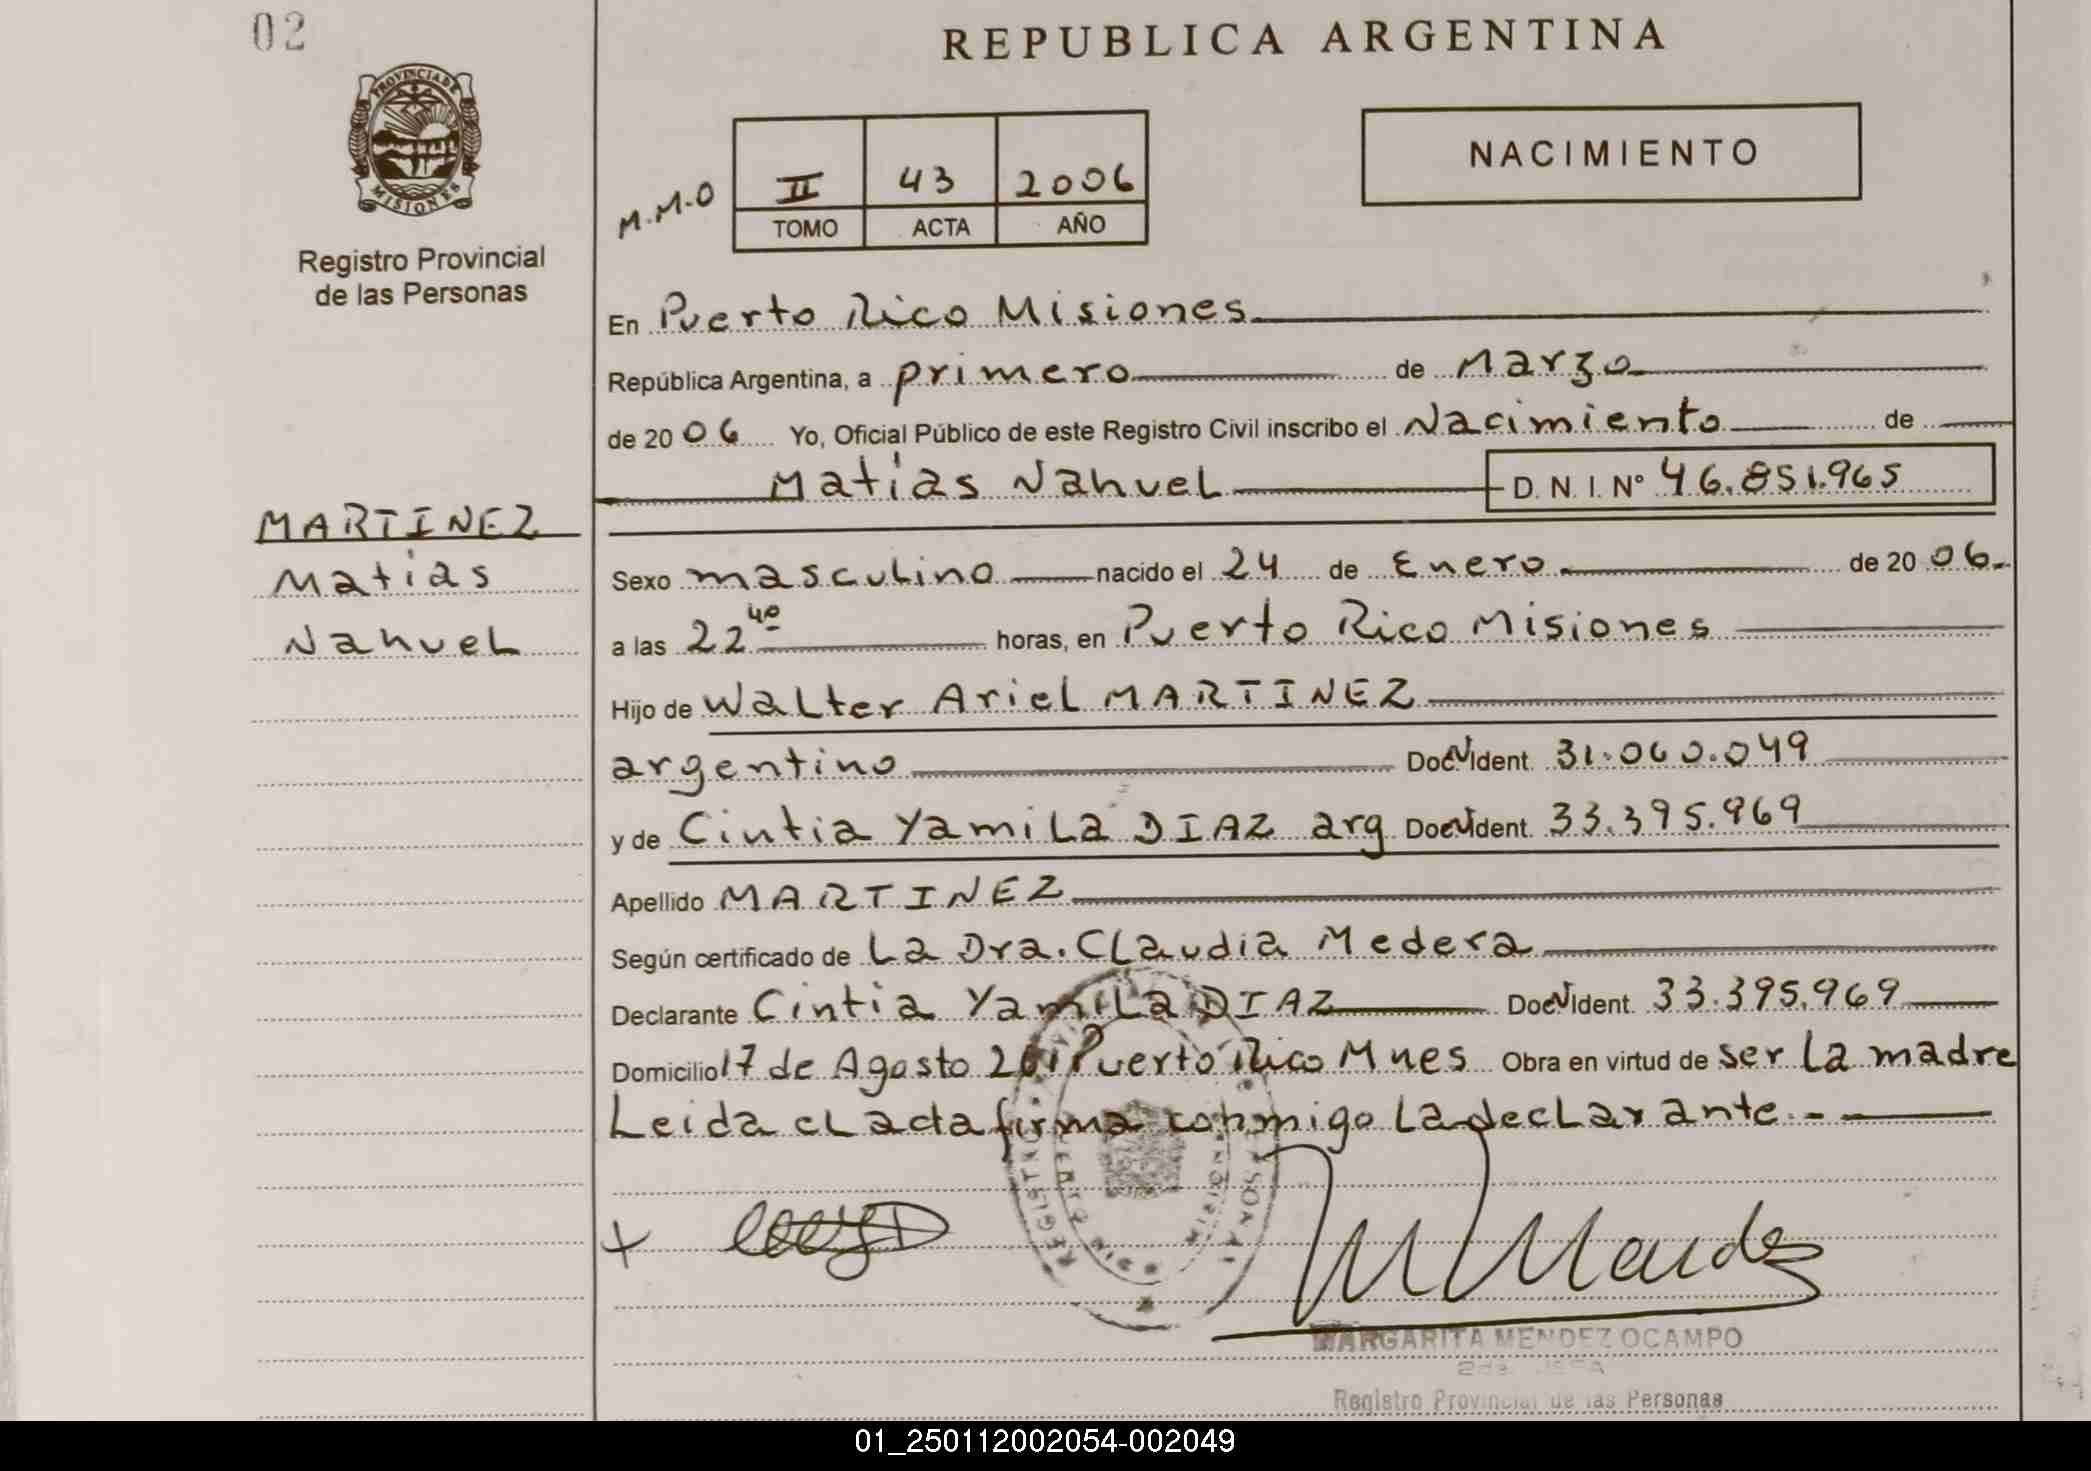 02
REPUBLICA ARGENTINA
PROVINCIA DE
MISIONES
Registro Provincial
de las Personas
NACIMIENTO
M.M.O
II 43 2006
TOMO ACTA AÑO
En Puerto Rico Misiones
República Argentina, a primero de Marzo
de 2006 Yo, Oficial Público de este Registro Civil inscribo el Nacimiento de
Matias Nahuel D. N. I. Nº 46.851.965
MARTINEZ
Matias
Nahuel
Sexo masculino nacido el 24 de Enero de 2006.
a las 22 40 horas, en Puerto Rico Misiones
Hijo de Walter Ariel MARTINEZ
argentino Doc. Ident. 31.060.049
y de Cintia Yamila DIAZ arg Doc. Ident. 33.395.969
Apellido MARTINEZ
Según certificado de La Dra. Claudia Medera
Declarante Cintia Yamila DIAZ Doc. Ident. 33.395.969
Domicilio 17 de Agosto 201 Puerto Rico Mnes Obra en virtud de ser la madre
Leida el acta firma conmigo la declarante.-
M Mendez
MARGARITA MENDEZ OCAMPO
Registro Provincial de las Personas
01_250112002054-002049